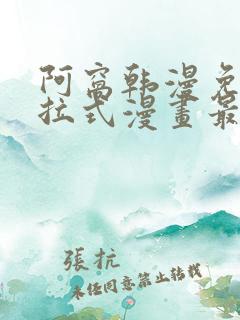 阿窩韩漫免
拉式漫畫最
張抗
未任同意禁止转载